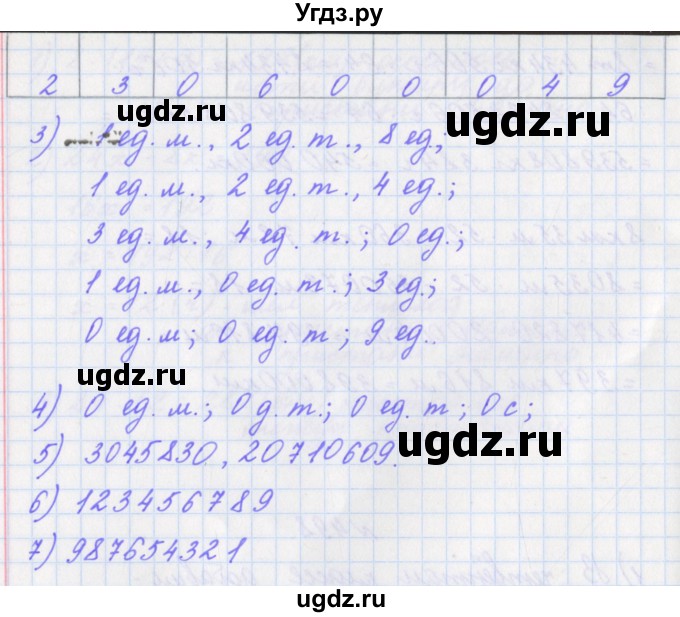 Угдз.ру
2 3 0 6 0 0 0 4 9
ugdz.ru ugdz.ru
3) 1 ед. м., 2 ед. т., 8 ед;
1 ед. м., 2 ед. т., 4 ед.;
3 ед. м., 4 ед. т.; 0 ед.;
ugdz.ru
1 ед. м., 0 ед. т.; 3 ед;
0 ед. м; 0 ед. т; 9 ед..
ugdz.ru
4) 0 ед. м.; 0 д. т.; 0 ед. т; 0 с;
5) 3045830, 20710609.
ugdz.ru
6) 123456789
ugdz.ru
7) 987654321
ugdz.ru